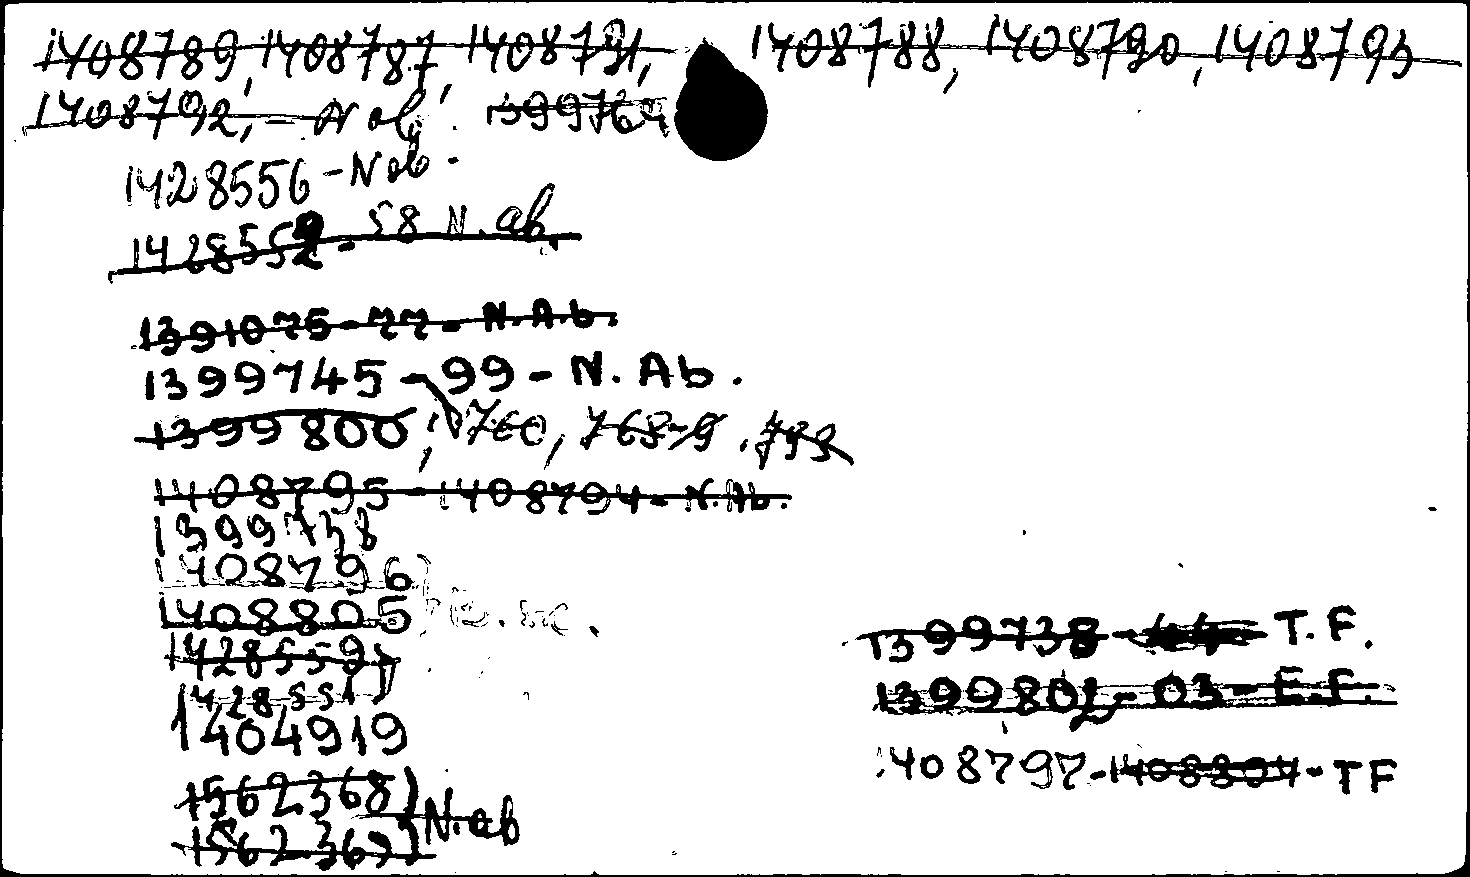 1408789, 1408787, 1408791, 1408788, 1408790, 1408793
1408792, - N ab. 1399764
1428556 - Nab.
1428552 - 58 N. ab.
1391075 - 77 - N.A.b.
1399745 - 99 - N. Ab.
1399800, 760, 768-9. 793
1408795 - 1408794 - N.Ab.
1399738
1408796
1408805
1428559
1428551
1404919
1562368) N. ab
1562369)
1399738 - T.F.
1399802 - 03 - E.F.
1408797 - 1408804 - TF